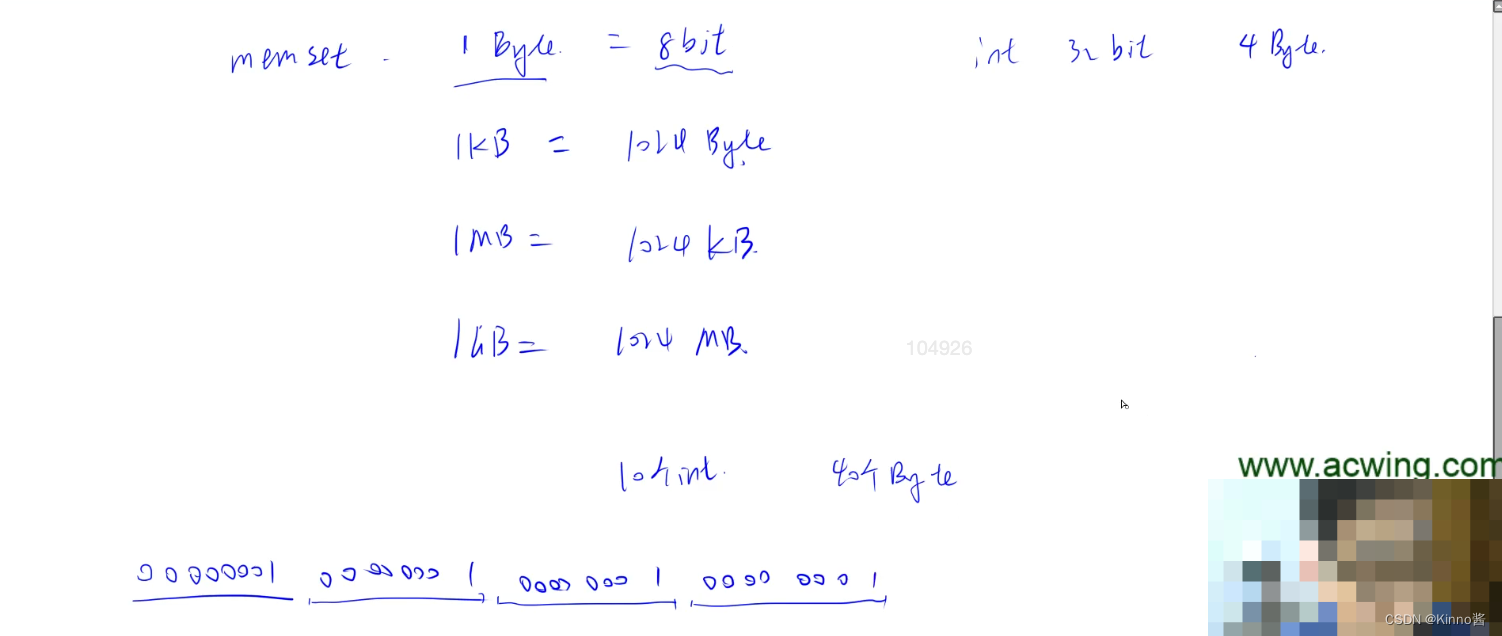 memset. 1 Byte. = 8bit int 32 bit 4 Byte.
1KB = 1024 Byte
1MB = 1024 KB.
1GB = 1024 MB.
104926
10个int. 40个Byte
www.acwing.com
00000001 00000001 00000001 00000001
CSDN @Kinno酱